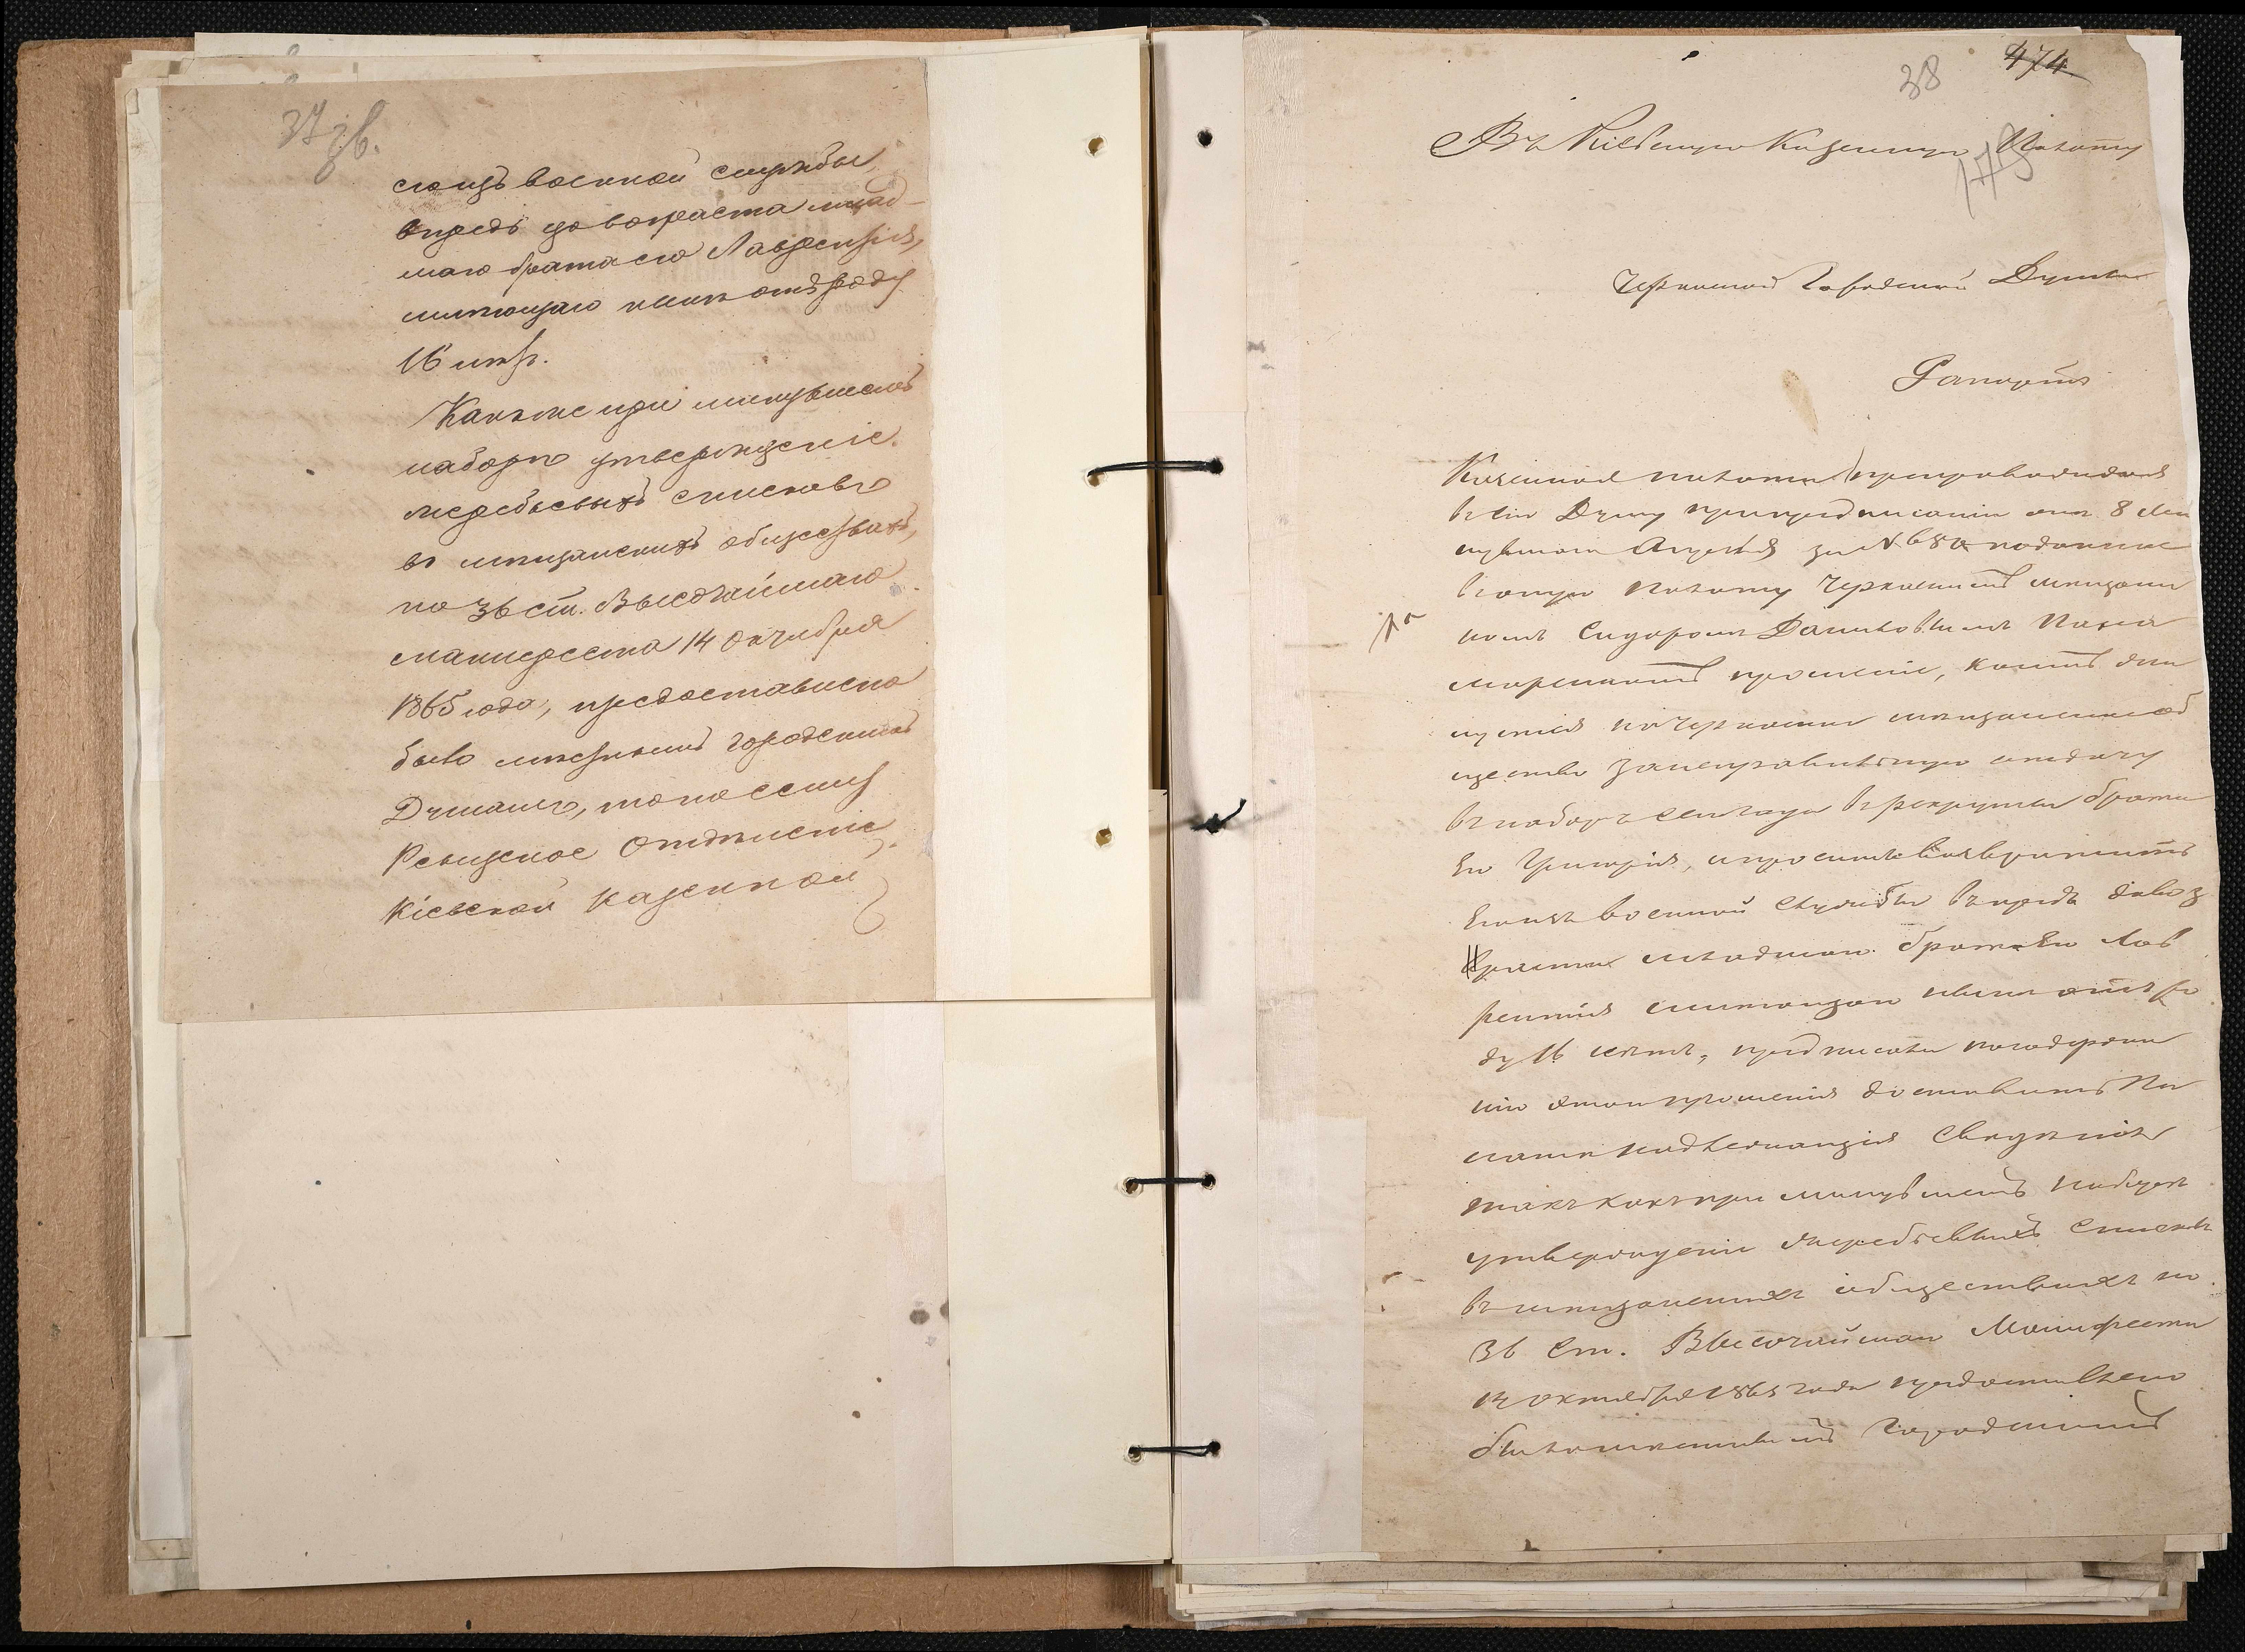 37 зв.
его изъ военной службы,
впредь до возраста млад-
шаго брата его Лаврентія,
имѣющаго нынѣ отъ роду
16 лѣтъ.
Какъ же при минувшемъ
наборѣ утвержденіе
жеребьевыхъ списковъ
въ мѣщанскихъ обществахъ,
по 36 ст. Высочайшаго
манифеста 14 Октября
1865 года, предоставлено
было мѣстнымъ городскимъ
Думамъ, то по сему
Ревизское Отдѣленіе
Кіевской Казенной
38 474
Въ Кіевскую Казенную Палату
Черкасской Городской Думы
Рапортъ
Казенная палата препровождая
въ сію Думу при предписаніи отъ 8 ми
нувшаго Августа за № 680 поданное
въ оную Палату Черкасскимъ мѣщани
номъ Сидоромъ
прошеніе, коимъ
на Черкасское мѣщанское об
щество за неправильную отдачу
въ наборъ сего года въ рекруты брата
Его Григорія, и просилъ возвратить
Его изъ военной службы впредь до воз
раста младшаго брата Его Лав
рентія имѣющаго нынѣ отъ ро
ду 16 лѣтъ, предписала по содержа
нію этого прошенія доставить Па
латѣ надлежащія свѣдѣнія
такъ какъ при минувшемъ наборѣ
утвержденіе жеребьевыхъ списковъ
въ мѣщанскихъ обществахъ по
36 ст. Высочайшаго Манифеста
14 октября 1865 года предоставлено
было мѣстнымъ Городскимъ